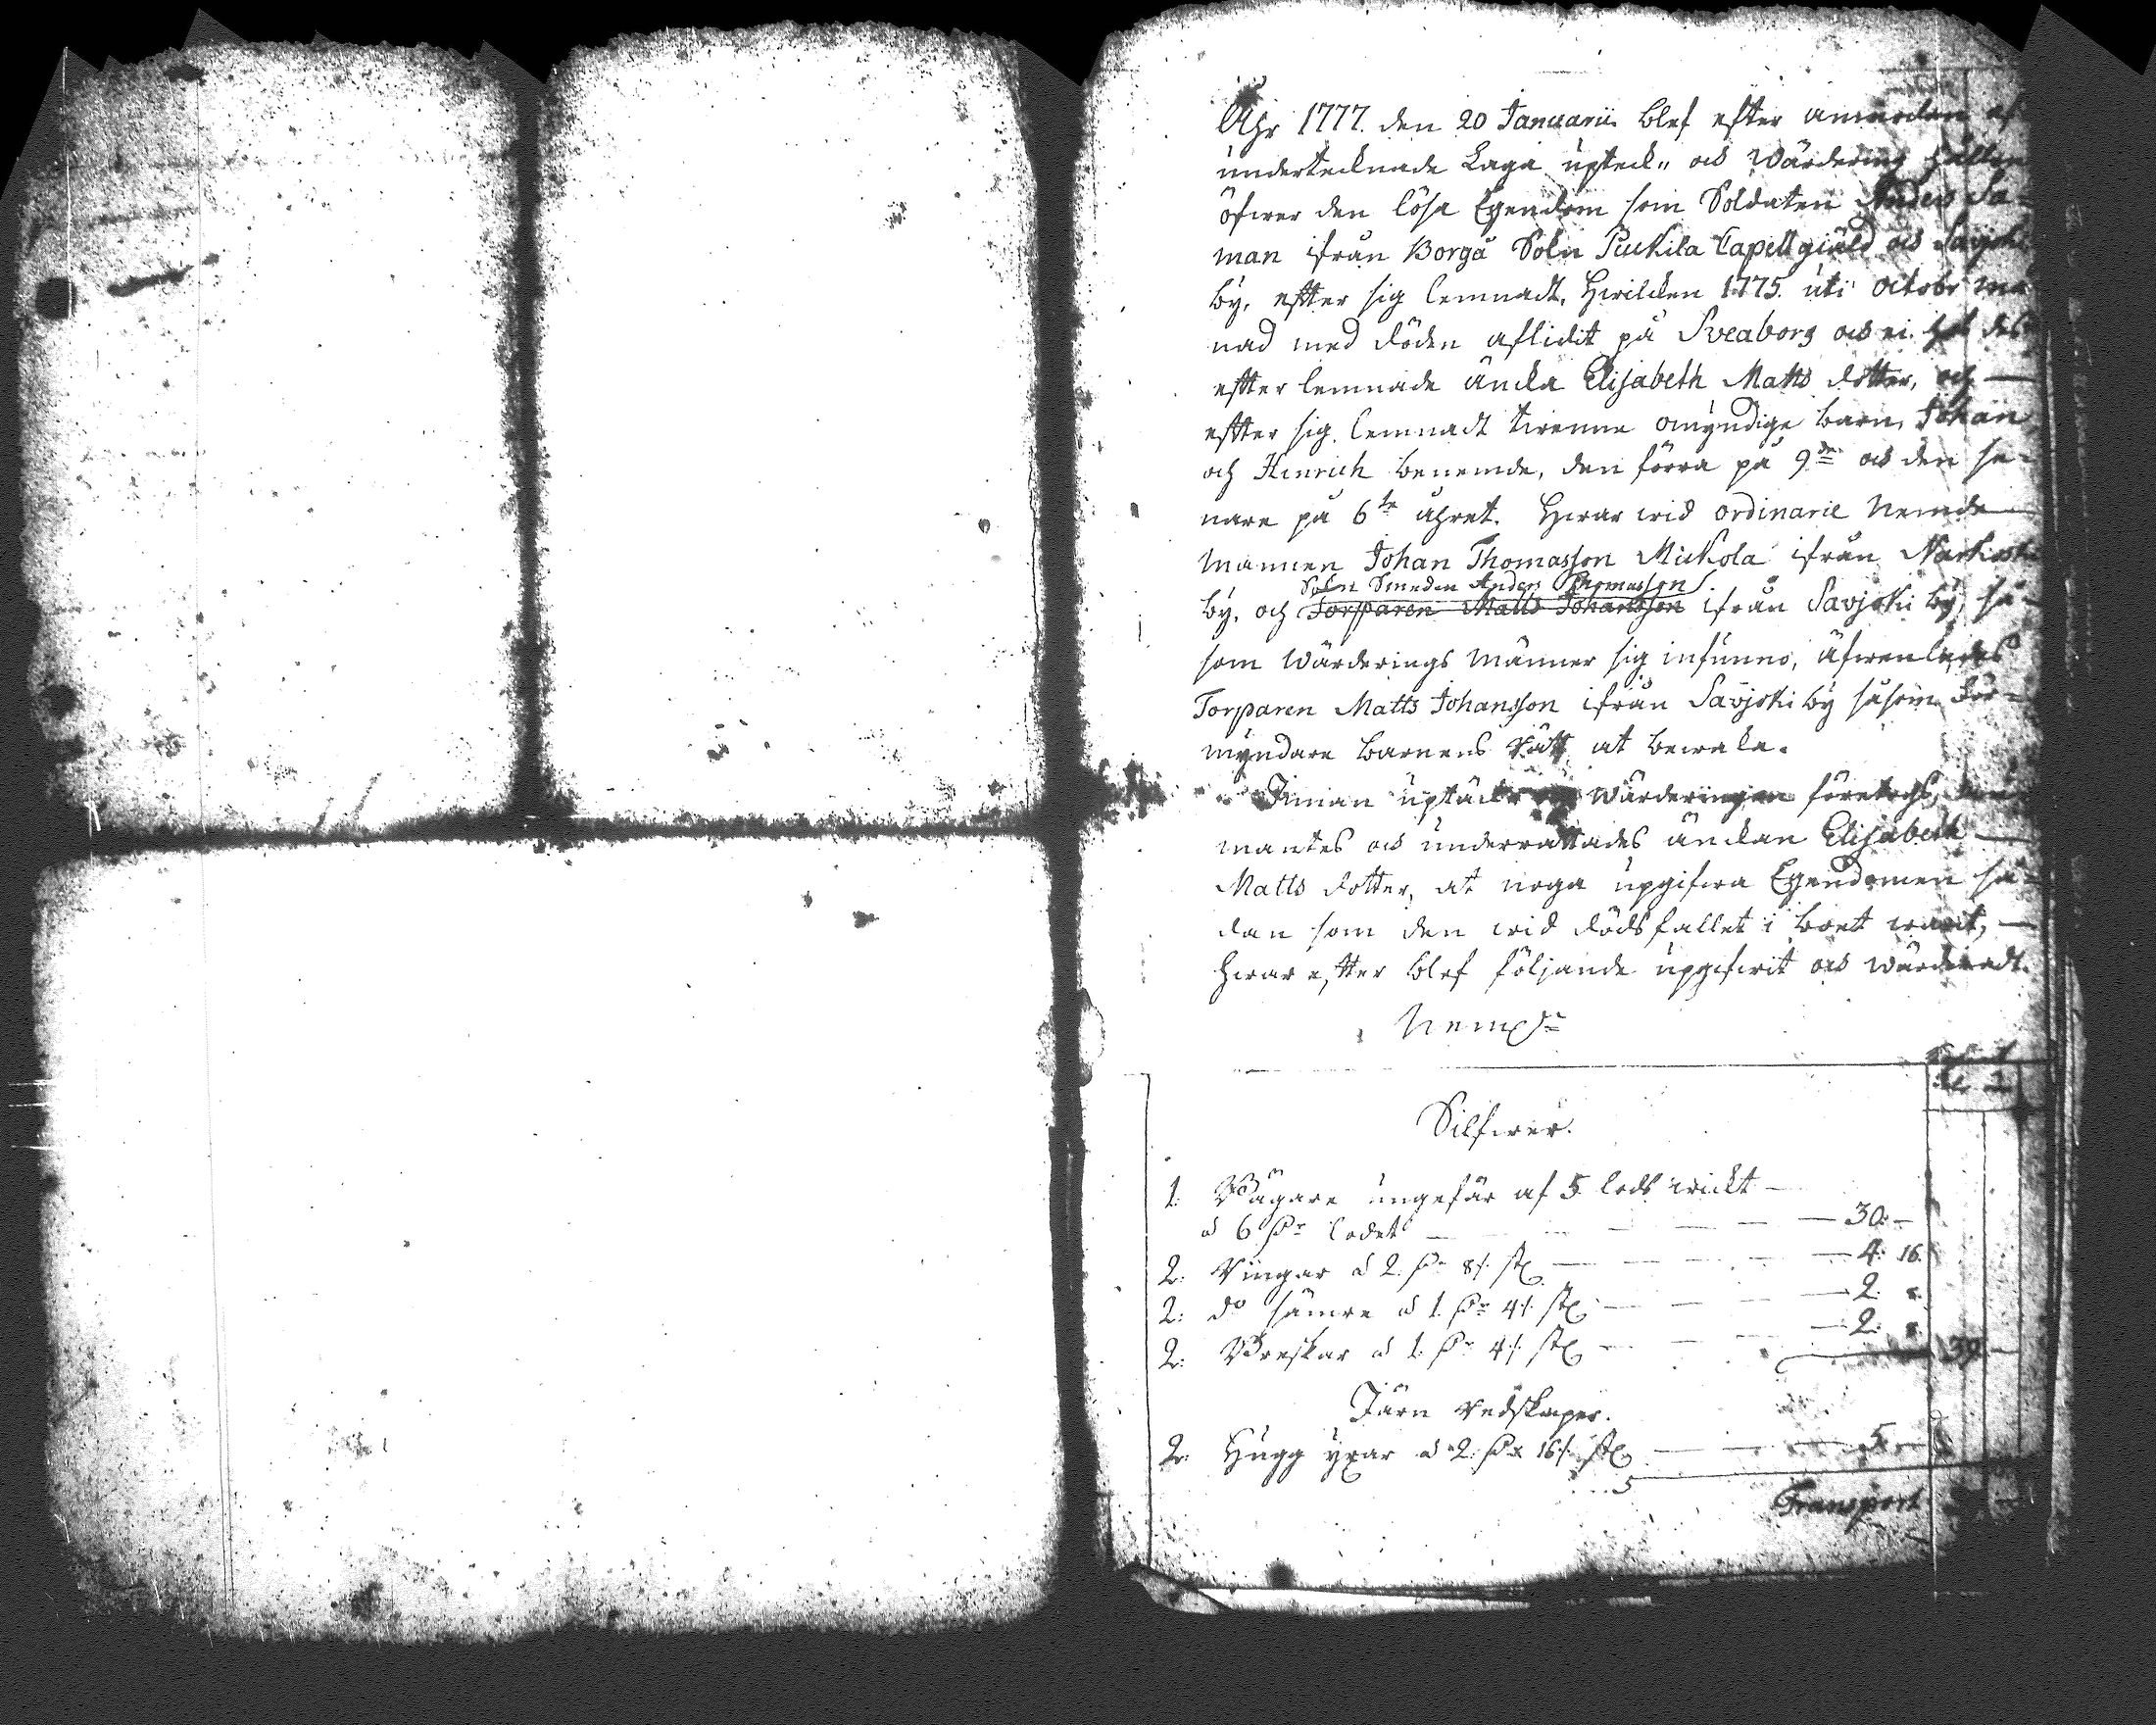 Åhr 1777. den 20 Januarii blef efter anmodan af
undertecknade Laga upteck" och wärdering hållen
öfwer den lösa Egendom som Soldaten Anders Sa-
man ifrån Borgå Sokn Puckila Capellgiäld och Savjoki
by, efter sig lemnadt, hwilcken 1775. uti Octobr må
nad med döden aflidit på Sveaborg och
efter lemnade äncka Elisabeth Matts dotter, och
efter sig lemnadt twenne omyndige barn, Johan
och Hinrich benemde, den förra på 9de och den se-
nare på 6te åhret. Hwar wid ordinarie Nemde
mannen Johan Thomasson Mickola ifrån
Sokn Smeden Anders Thomasson
by, och Torpparen Matts Johansson ifrån Savjoki by, så-
som Wärderings Männer sig infunno, äfwenledes
Torparen Matts Johansson ifrån Savjoki by såsom För-
myndare barnens rätt at bewaka.
Innan uptäckt wärderingen företogs,
mantes och underrättades änckan Elisabeth
Matts dotter, at noga upgifwa Egendomen så-
dan som den wid dödsfallet i boet warit,
hwarefter blef följande upgifwit och wärderadt.
Nempl
Silfwer.
1: Bägare ungefär af 5 lods wickt
a 6 lodet 30: -
2: Ringar a 2: 8/: st 4: 16.
2: do sämre a 1. 4/: st 2: 8.
2: Breskar a 1: 4/: st 2: 8. 39
Järn Redskaper.
2: Hugg yxar a 2: 16/: st 5
Transport